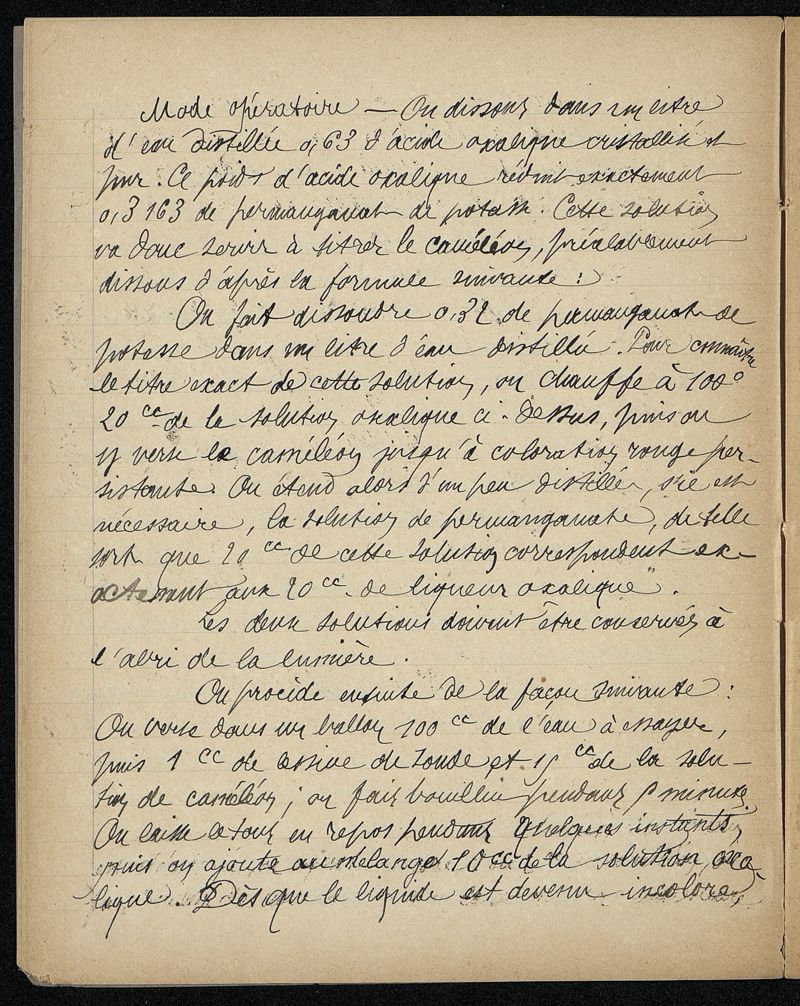 Mode opératoire — On dissous dans un litre
d'eau distillée 0,63 d'acide oxalique cristallisé et
pur. Ce poids d'acide oxalique réduit exactement
0,3163 de permanganate de potasse. Cette solution
va donc servir à titrer le caméléon, préalablement
dissous d'après la formule suivante :
On fait dissoudre 0,32 de permanganate de
potasse dans un litre d'eau distillée. Pour connaître
le titre exact de cette solution, on chauffe à 100°
20 cc de la solution oxalique ci-dessus, puis on
y verse le caméléon jusqu'à coloration rouge per-
sistante. On étend alors d'un peu distillée, s'il est
nécessaire, la solution de permanganate, de telle
sorte que 20 cc de cette solution correspondent ex-
actement aux 20 cc de liqueur oxalique".
Les deux solutions doivent être conservés à
l'abri de la lumière.
On procède ensuite de la façon suivante :
On verse dans un ballon 100 cc de l'eau à essayer,
puis 1 cc de lessive de soude et 15 cc de la solu-
tion de caméléon ; on fait bouillir pendant minutes.
On laisse le tout en repos pendant quelques instants,
puis on ajoute au mélange 10 cc de la solution oxa-
lique. Dès que le liquide est devenu incolore,